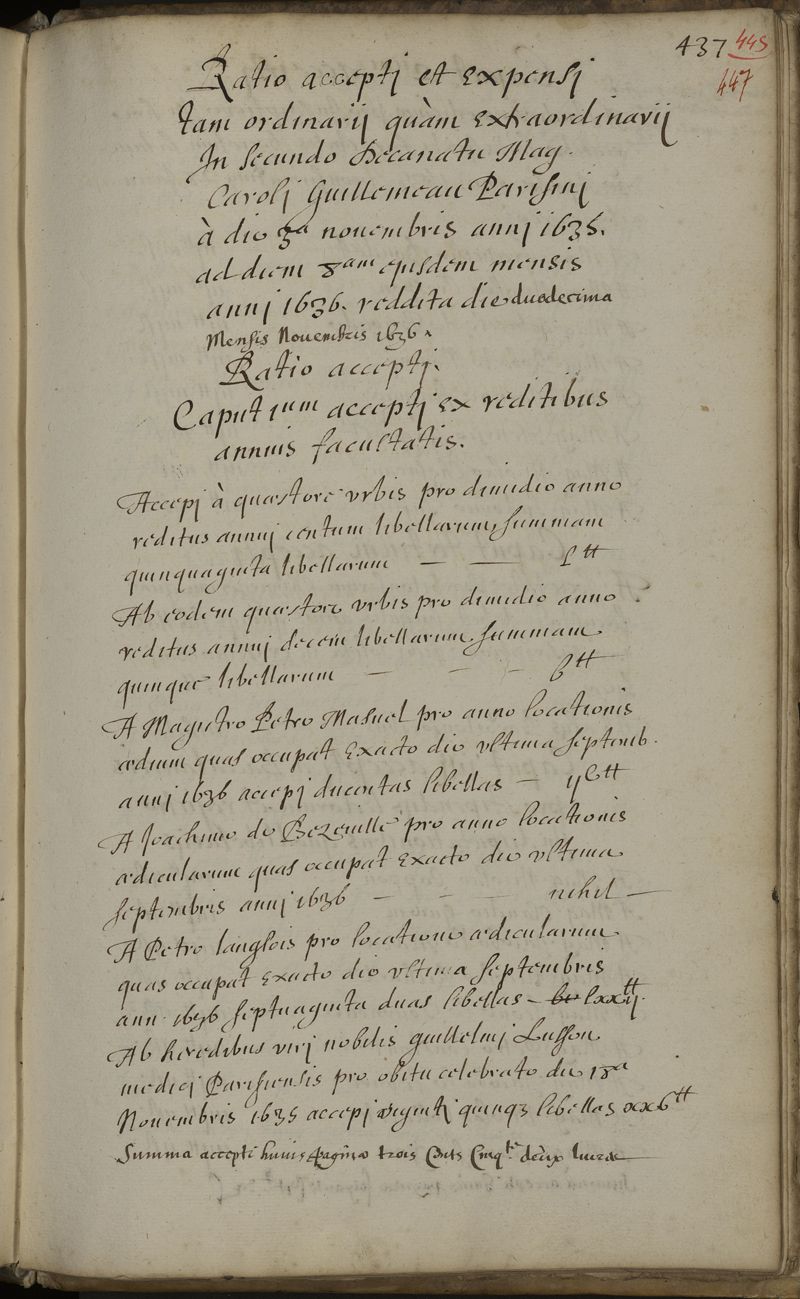 437 445
447
Ratio acceptj et expensj
tam ordinarij quàm extraordinarij
In secundo Decanatu Mag.
Carolj Guillemeau Parisinj
à die 3a nouembris annj 1635.
ad diem 8am ejusdem mensis
annj 1636. reddita die duodecima
Mensis Nouembris 1636.
Ratio acceptj.
Caput 1um acceptj ex reditibus
annuis facultatis.
Accepj à quæstore vrbis pro dimidio anno
reditus annuj centum libellarum, summam
quinquaginta libellarum — — l tt
Ab eodem quæstore vrbis pro dimidio anno
reditus annuj decem libellarum summam
quinque libellarum — — — 6 tt
A Magistro Petro Masuel pro anno locationis
ædium quas occupat exacto die vltima septemb.
annj 1636 accepj ducentas libellas — ijC tt
A Joachimo de Bezeuille pro anno locationis
ædicularum quas occupat exacto die vltima
septembris annj 1636 — — — nihil —
A Petro langlois pro locatione ædicularum
quas occupat exacto die vltima septembris
ann. 1636 septuaginta duas libellas — lxxij tt.
Ab heredibus virj nobilis guillelmj Lusson
medicj Parisiensis pro obitu celebrato die 18a
Nouembris 1635 accepj vigintj quinq3 libellas xx6 tt
Summa accepti huius paginæ trois Cents Cinqte deux liures